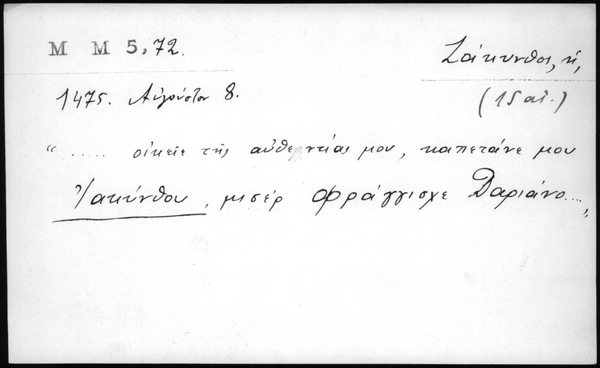 M M 5,72.
Ζάκυνθος, ἡ,
1475. Αὐγούστου 8.
(15 αἰ.)
"..... οἰκεῖε τῆς αὐθεντίας μου, καπετάνε μου
Ζακύνθου, μισέρ Φράγγισχε Δαριάνο....„